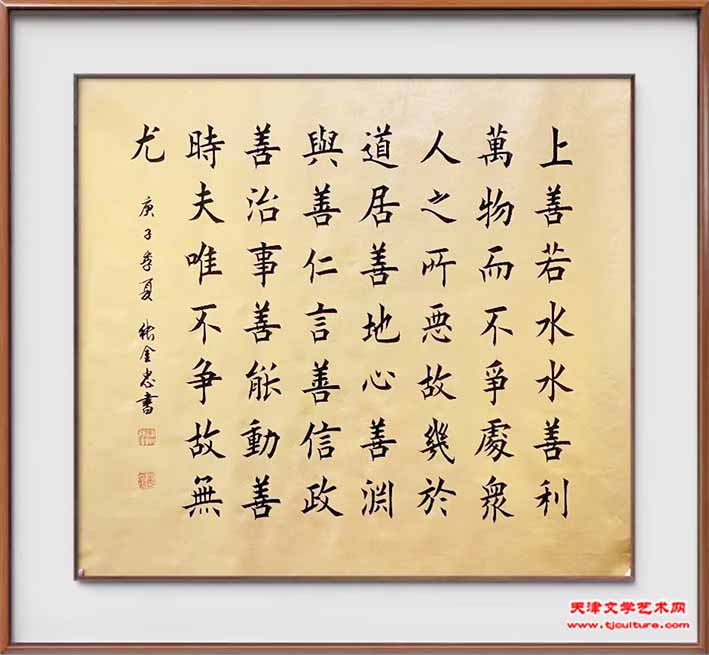 上善若水水善利
萬物而不爭處衆
人之所惡故幾於
道居善地心善渊
與善仁言善信政
善治事善能動善
時夫唯不争故無
尤
庚子季夏 张金忠書
天津文学艺术网
www.tjculture.com